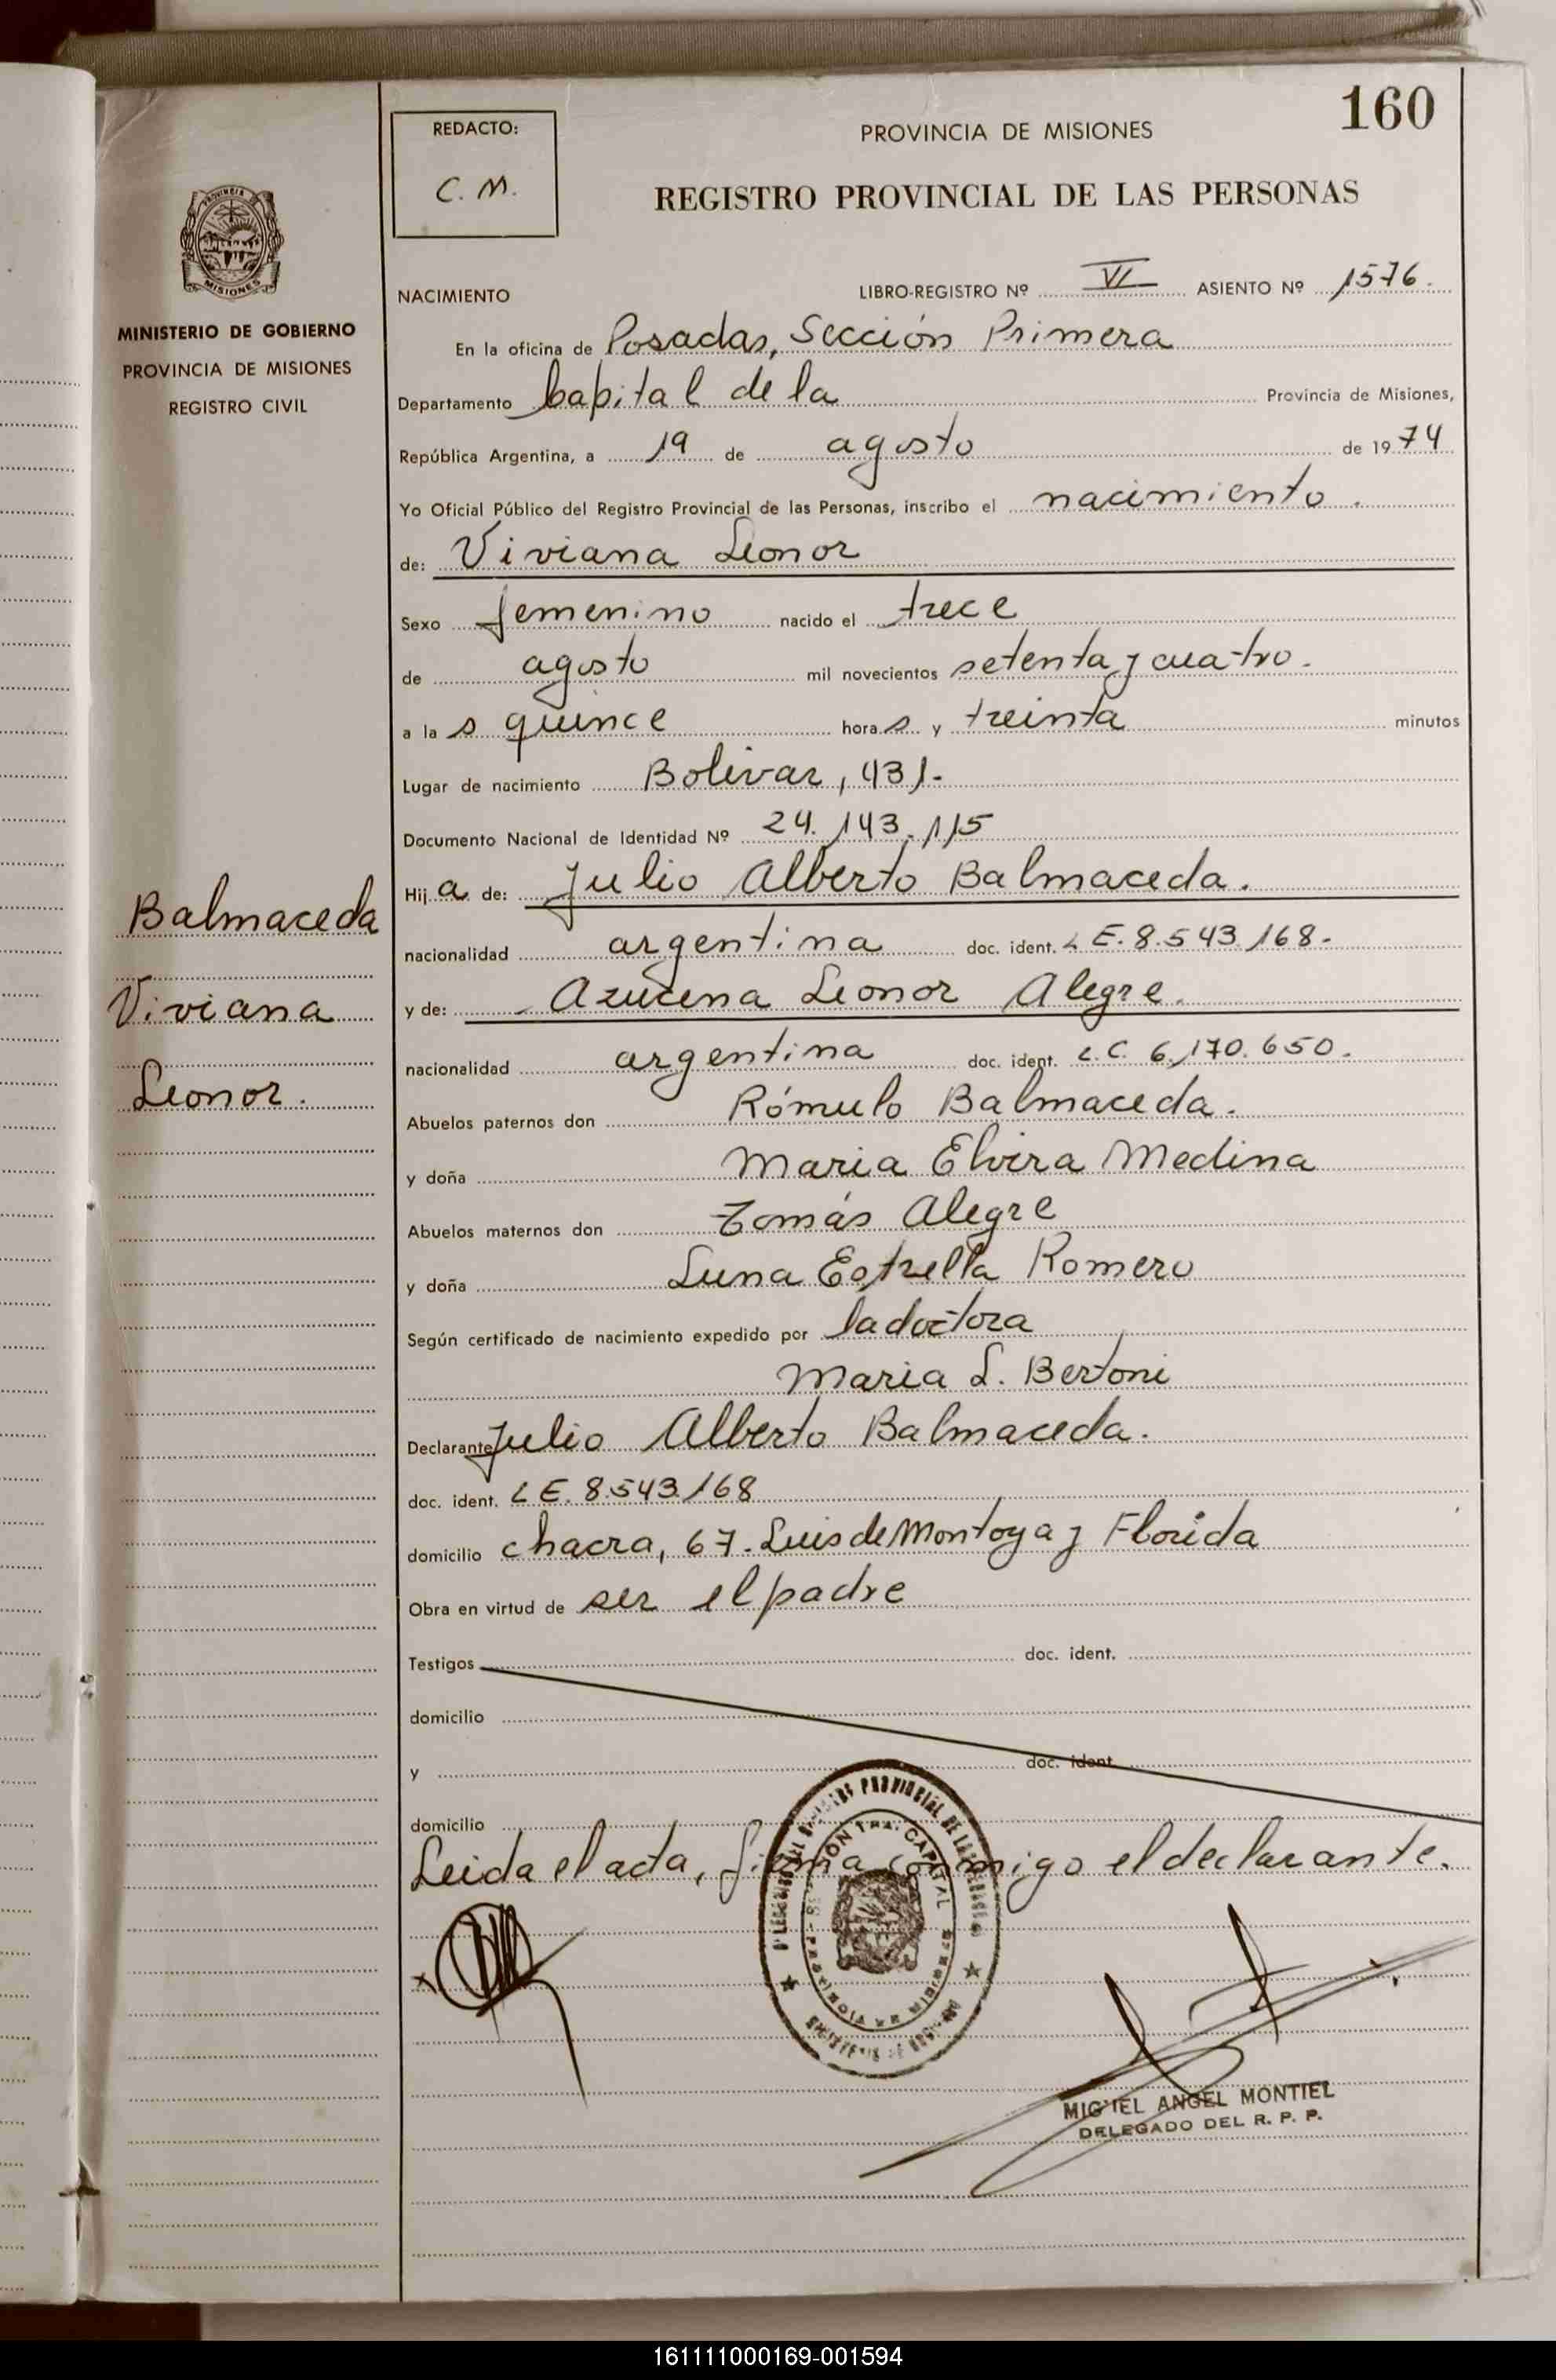 160
REDACTO:
C. M.
PROVINCIA DE MISIONES
REGISTRO PROVINCIAL DE LAS PERSONAS
PROVINCIA
MISIONES
MINISTERIO DE GOBIERNO
PROVINCIA DE MISIONES
REGISTRO CIVIL
NACIMIENTO LIBRO-REGISTRO Nº VI ASIENTO Nº 1576.
En la oficina de Posadas, Sección Primera
Departamento Capital de la Provincia de Misiones,
República Argentina, a 19 de agosto de 1974
Yo Oficial Público del Registro Provincial de las Personas, inscribo el nacimiento.
de: Viviana Leonor
Sexo femenino nacido el trece
de agosto mil novecientos setenta y cuatro.
a las quince horas y treinta minutos
Lugar de nacimiento Bolivar, 431.-
Documento Nacional de Identidad Nº 24.143.115
Hija de: Julio Alberto Balmaceda.
nacionalidad argentina doc. ident. L E. 8.543.168.-
y de: Azucena Leonor Alegre.
nacionalidad argentina doc. ident. L.C. 6.170.650.
Abuelos paternos don Rómulo Balmaceda.
y doña Maria Elvira Medina
Abuelos maternos don Tomás Alegre
y doña Luna Estrella Romero
Según certificado de nacimiento expedido por la doctora
Maria L. Bertoni
Declarante Julio Alberto Balmaceda.
doc. ident. L E. 8.543.168
domicilio chacra, 67. Luis de Montoya y Florida
Obra en virtud de ser el padre
Testigos doc. ident.
domicilio
y doc. ident.
domicilio
Leida el acta, firma conmigo el declarante.
Balmaceda
Viviana
Leonor.
PROVINCIAL DE LAS PERSONAS
CAPITAL
MIGUEL ANGEL MONTIEL
DELEGADO DEL R. P. P.
161111000169-001594